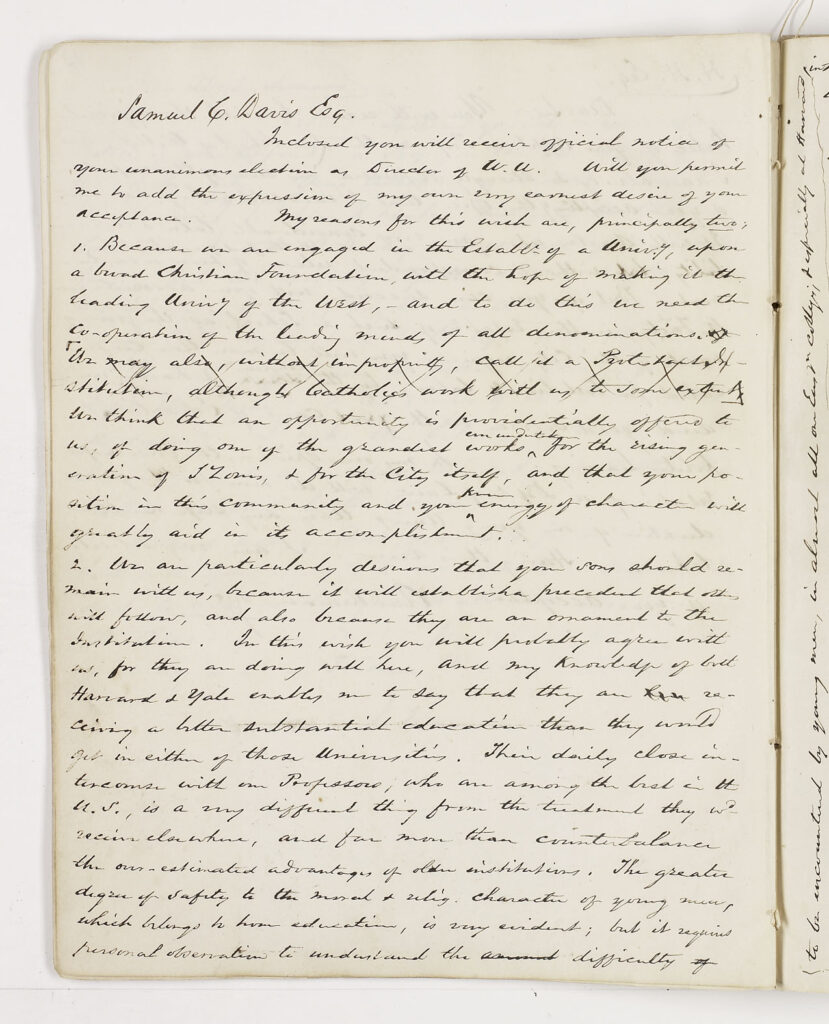 Samuel C. Davis Esq.
Inclosed you will receive official notice of
your unanimous election as Director of W. U. Will you permit
me to add the expression of my own very earnest desire of your
acceptance. My reasons for this wish are, principally two;
1. Because we are engaged in the Establt. of a Univy, upon
a broad Christian Foundation, with the hope of making it the
leading Univy of the West, - and to do this we need the
co-operation of the leading minds of all denominations.
We may also, without impropriety, call it a Protestant In-
stitution, although Catholics work with us to some extent.
We think that an opportunity is providentially offered to
us, of doing one of the grandest works, for the rising gen-
eration of S Louis, & for the City itself, and that your po-
sition in this community and your known energy of character will
greatly aid in its accomplishment.
2. We are particularly desirous that your sons should re-
main with us, because it will establish a precedent that others
will follow, and also because they are an ornament to the
Institution. In this wish you will probably agree with
us, for they are doing well here, and my knowledge of both
Harvard & Yale enables me to say that they are re-
ceiving a better substantial education than they would
get in either of those Universities. Their daily close in-
tercourse with our Professors, who are among the best in the
U.S., is a very different thing from the treatment they wd.
receive elsewhere, and far more than counterbalance
the over-estimated advantages of older institutions. The greater
degree of safety to the moral & relig. character of young men,
which belongs to home education, is very evident; but it requires
personal observation to understand the amount difficulty of
(to be encountered by young men, in almost all our Eastn colleges, & especially at Harvard